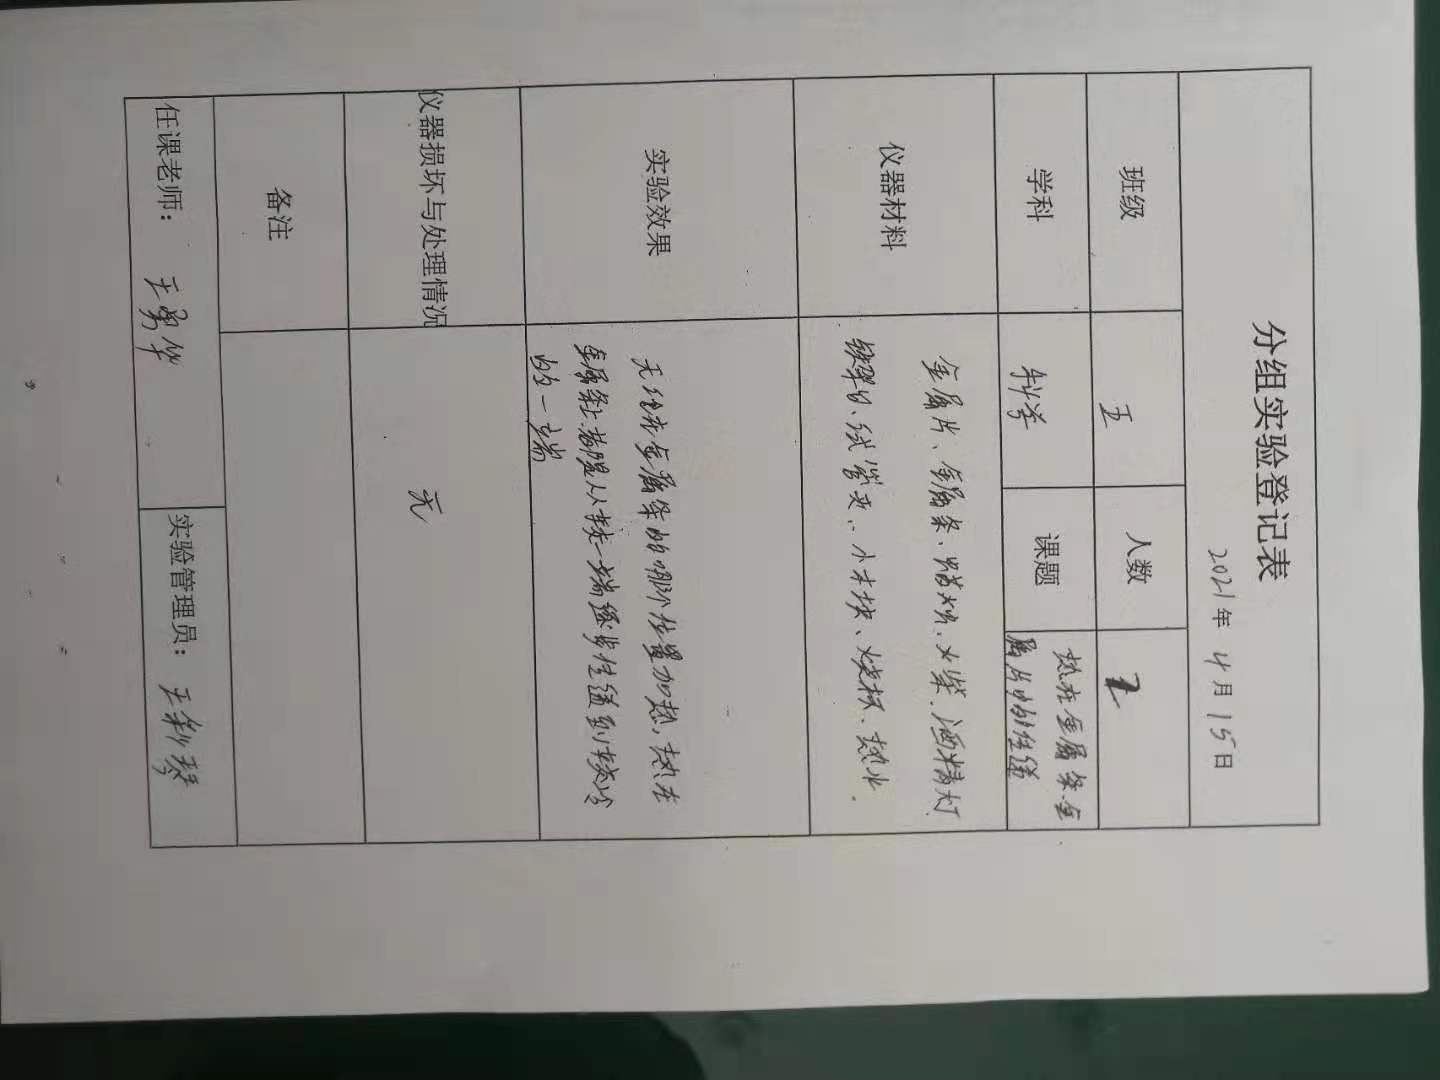 分组实验登记表
2021年 4月 15日
班级 五 人数 2
学科 科学 课题 热在金属条.金
属片中的传递
仪器材料
金属片、金属条、蜡烛、火柴、酒精灯
铁架台、试管夹、小木块、烧杯、热水.
实验效果
无论在金属条的哪个位置加热,热在
金属条上都是从较热一端逐步传递到较冷
的一端
仪器损坏与处理情况
无
备注
任课老师: 王勇华 实验管理员: 王彩琴